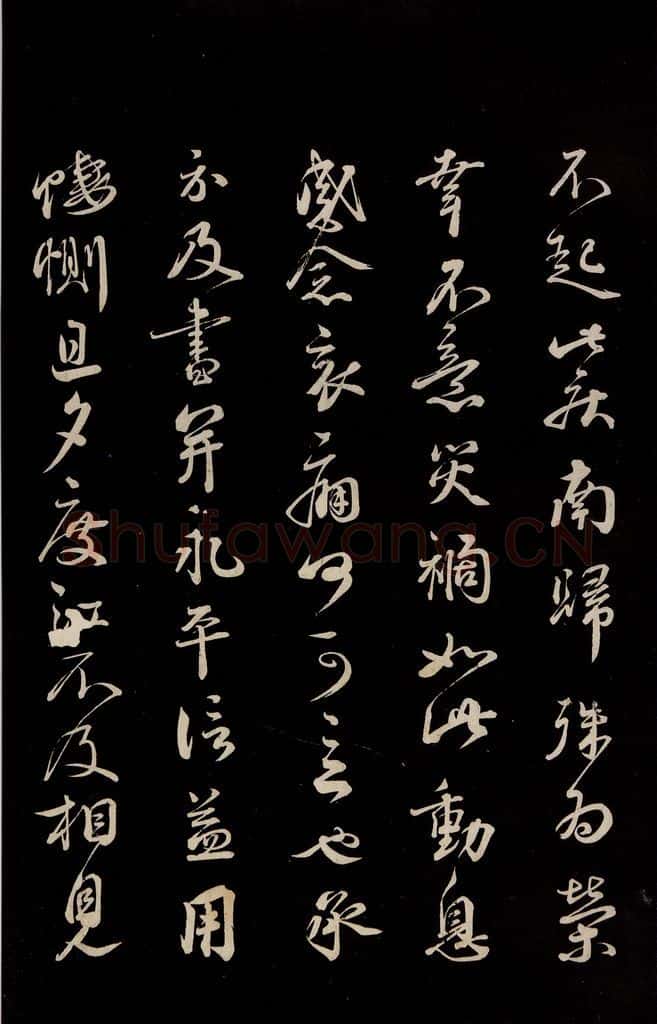 不起此疾南歸殊為榮
幸不意災禍如此動息
感念哀痛何可言也承
示及書并永平信益用
悽惻旦夕度江不及相見
Shufawang.CN